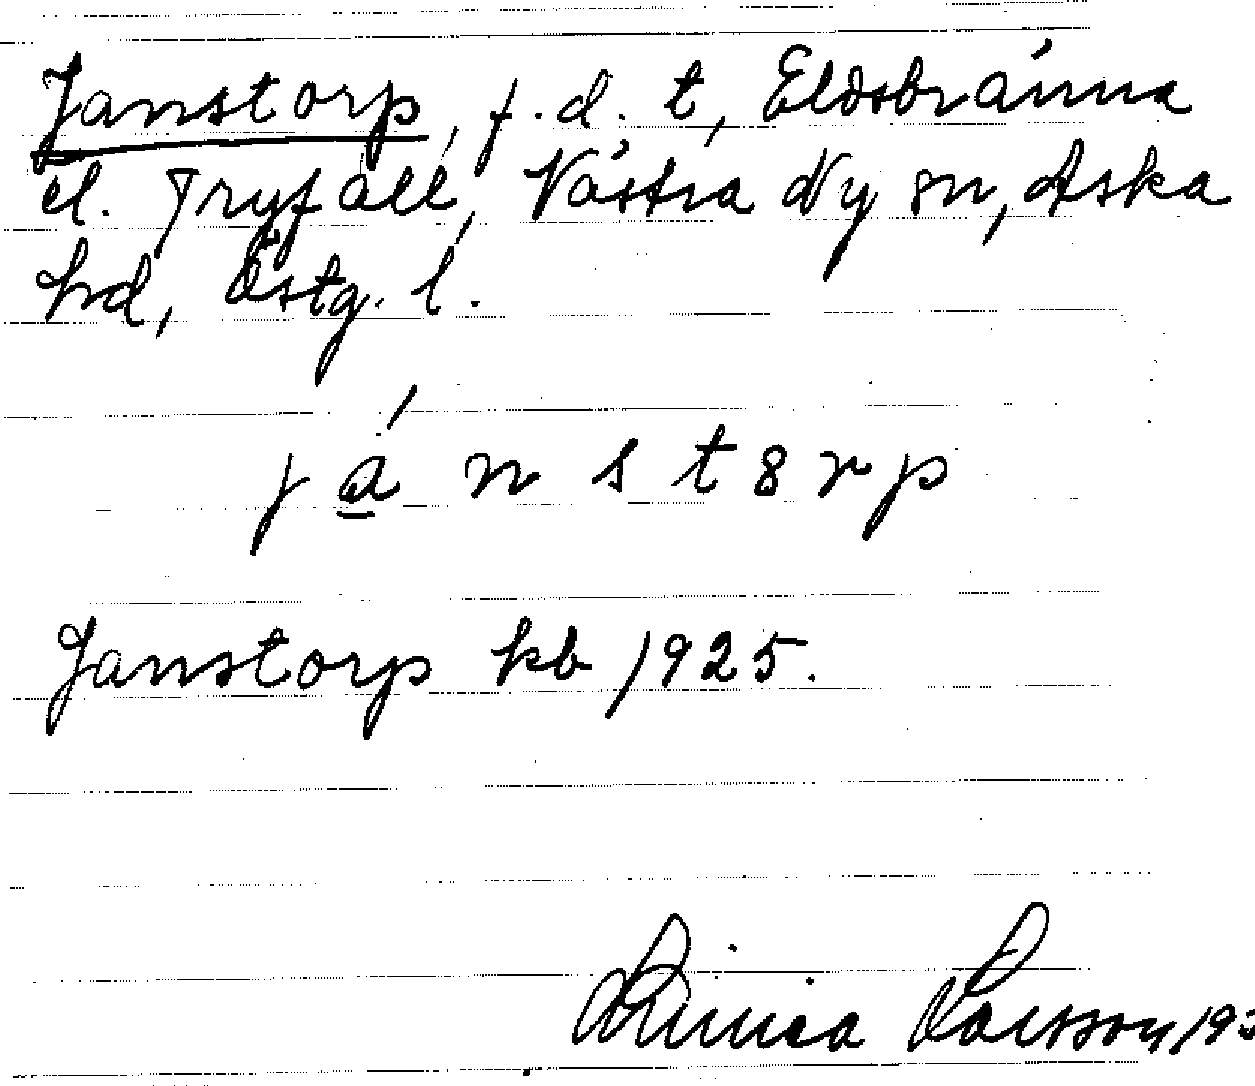 Janstorp, f.d. t, Eldsbränna
el. Tryfall, Västra Ny sn, Aska
hd, Östg. l.
já̱nstɜrp
Janstorp kb 1925.
Larsson, 193